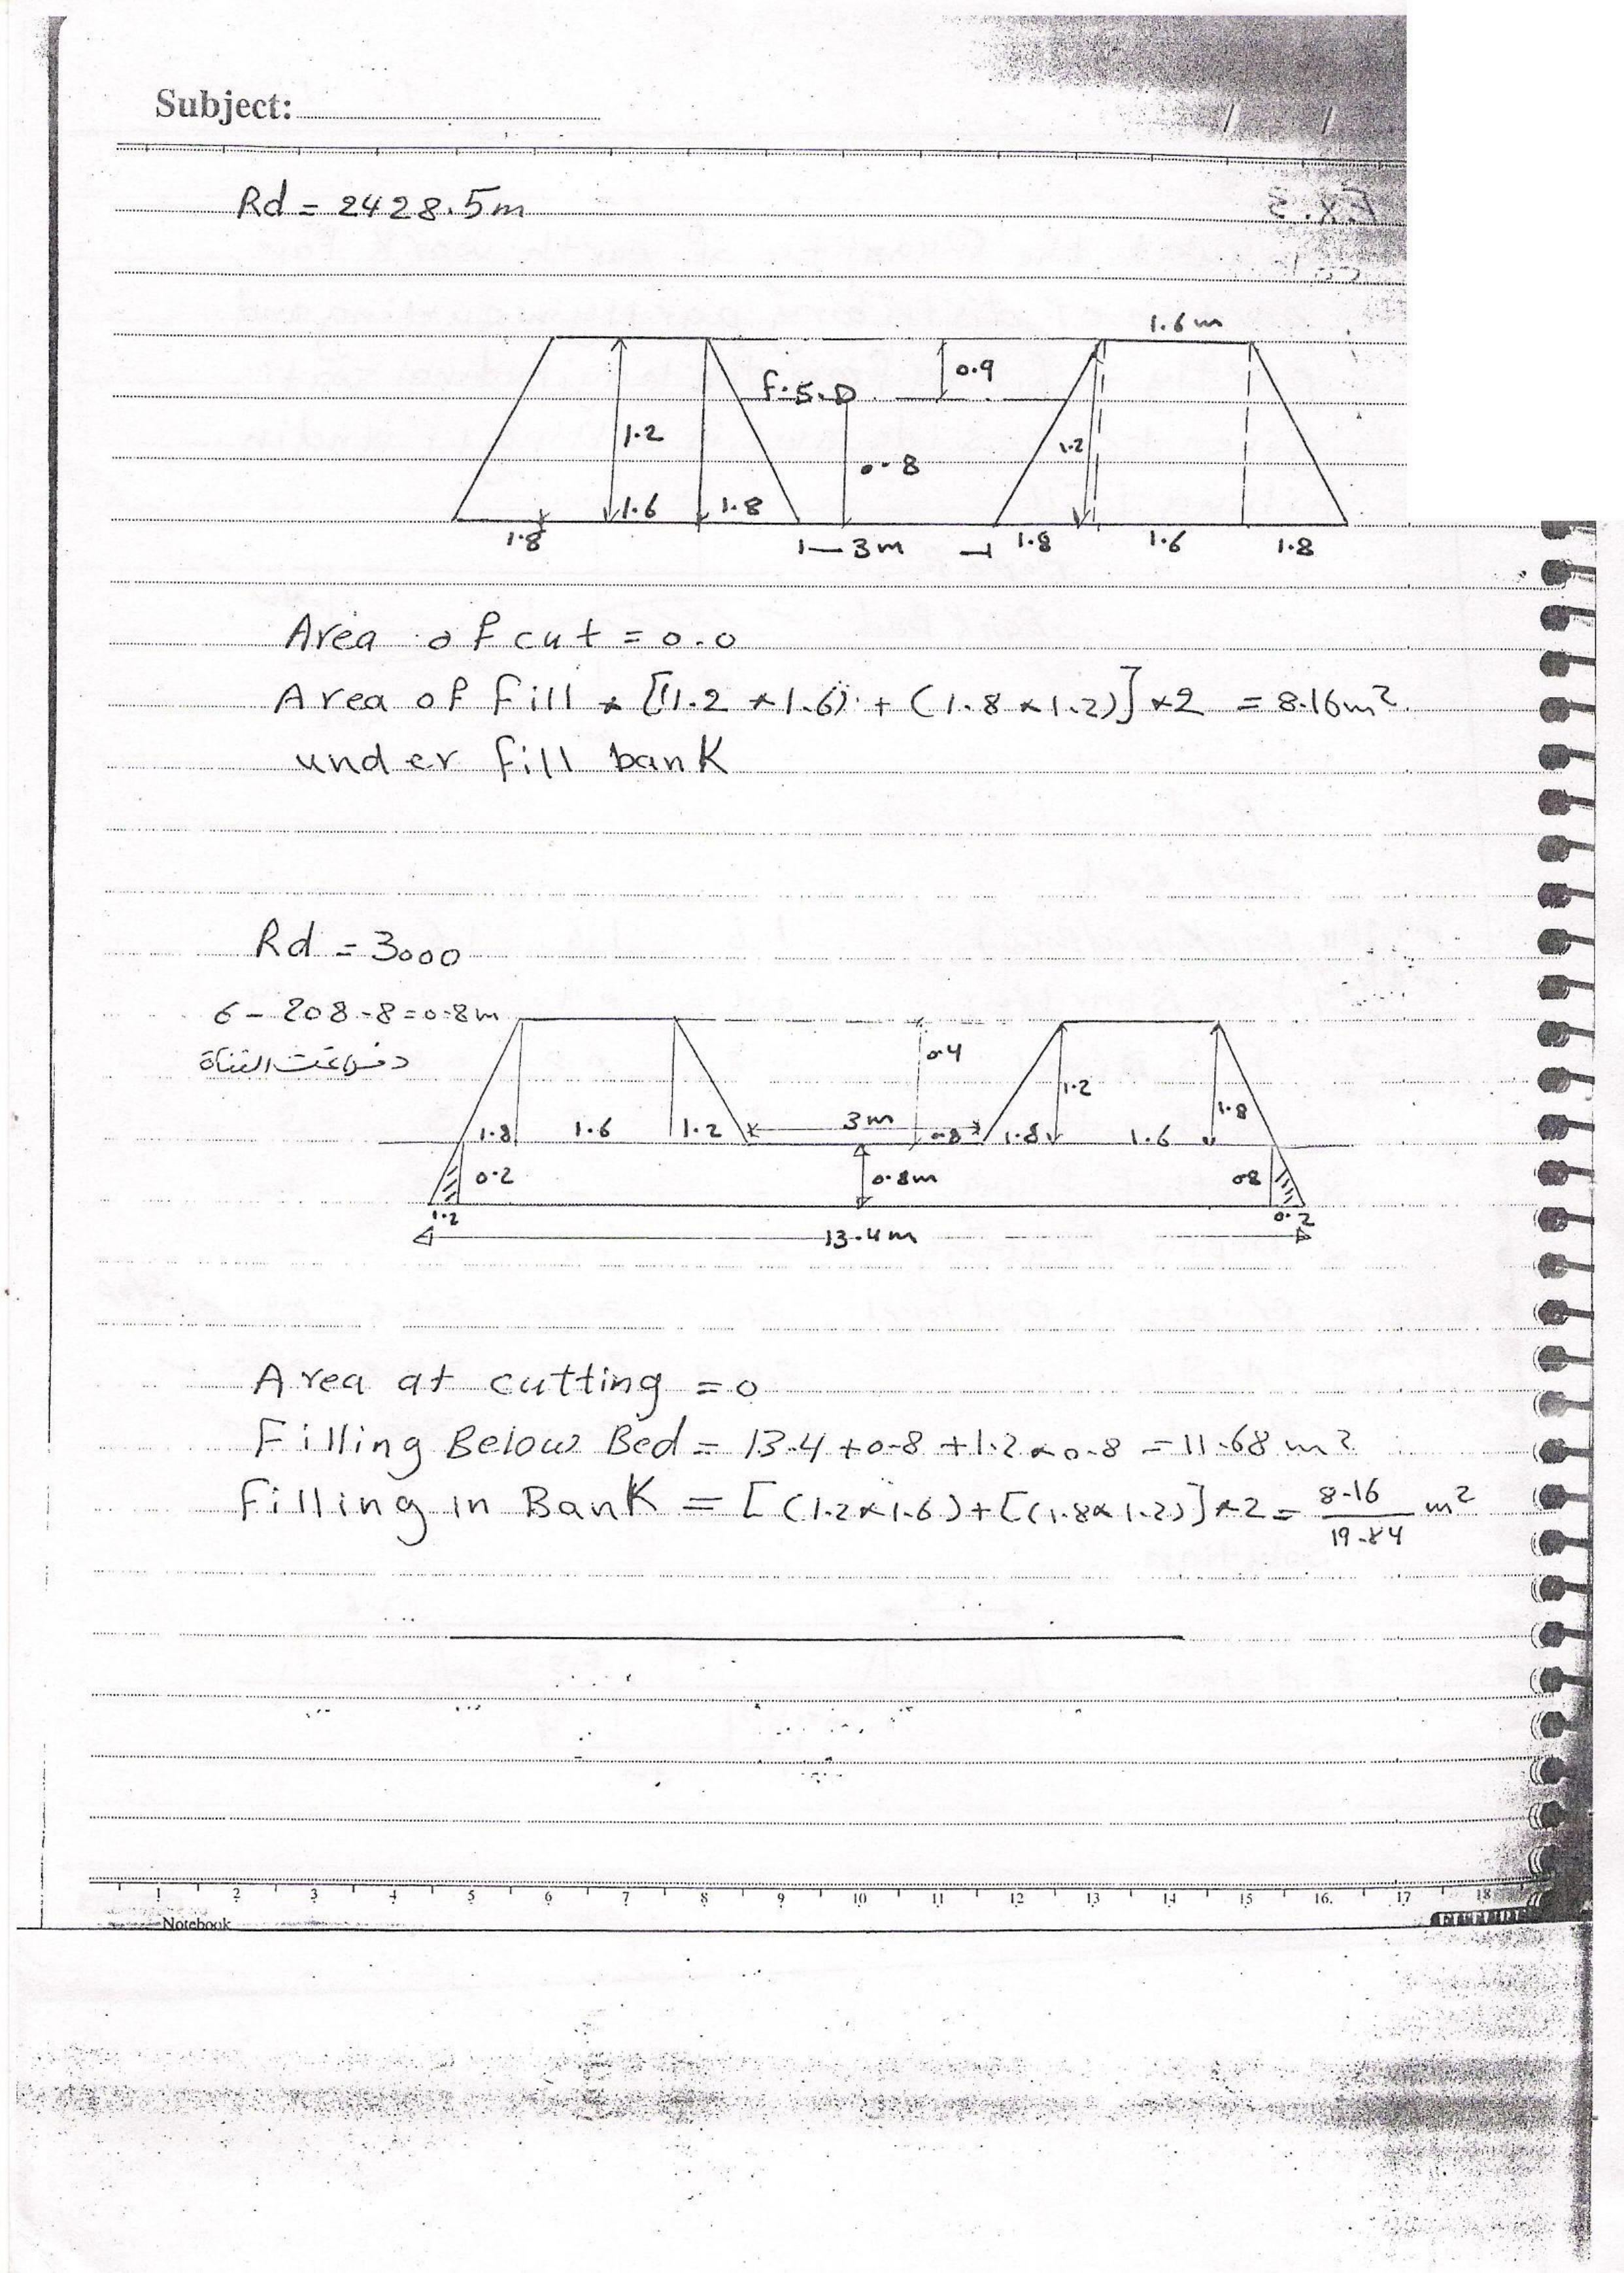 Subject:
Rd = 2428.5m
1.6m
0.9
F.S.D
1.2
1.2
0.8
1.6
1.8
1.8
3m
1.8
1.6
1.8
Area of cut = 0.0
Area of fill * [(1.2 * 1.6) + (1.8 * 1.2)] *2 = 8.16m²
under fill bank
Rd = 3000
6 - 208 - 8 = 0.8m
القناة
0.4
1.2
1.8
1.8 1.6 1.2 3m 0.8 1.8 1.6
0.2 0.8m 08
1.2 0.2
13.4m
Area at cutting = 0
Filling Below Bed = 13.4 + 0.8 + 1.2 * 0.8 = 11.68 m²
Filling in Bank = [(1.2*1.6)+[(1.8*1.2)]*2 = 8.16 m²
19.84
1 2 3 4 5 6 7 8 9 10 11 12 13 14 15 16 17 18
Notebook